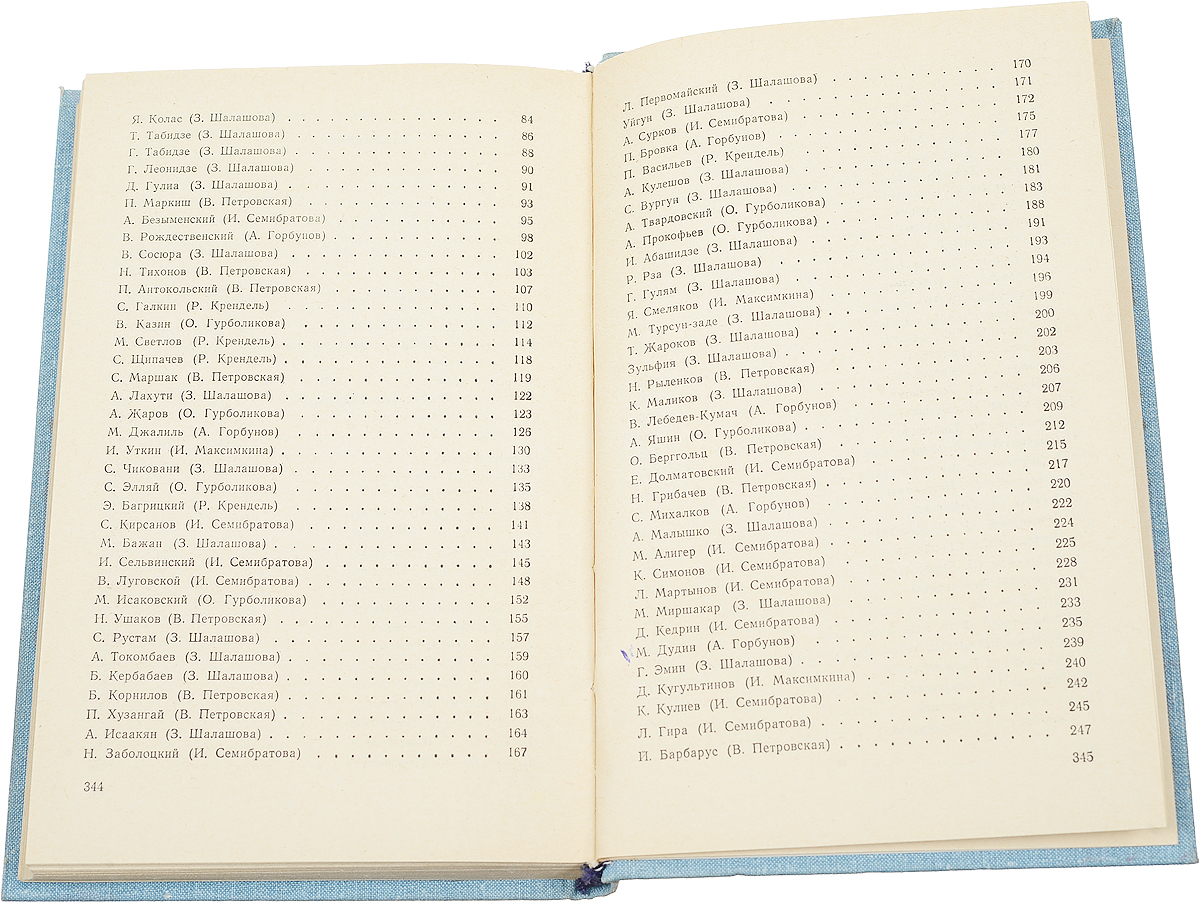 Я. Колас (З. Шалашова) 84
Т. Табидзе (З. Шалашова) 86
Г. Табидзе (З. Шалашова) 88
Г. Леонидзе (З. Шалашова) 90
Д. Гулиа (З. Шалашова) 91
П. Маркиш (В. Петровская) 93
А. Безыменский (И. Семибратова) 95
В. Рождественский (А. Горбунов) 98
В. Сосюра (З. Шалашова) 102
Н. Тихонов (В. Петровская) 103
П. Антокольский (В. Петровская) 107
С. Галкин (Р. Крендель) 110
В. Казин (О. Гурболикова) 112
М. Светлов (Р. Крендель) 114
С. Щипачев (Р. Крендель) 118
С. Маршак (В. Петровская) 119
А. Лахути (З. Шалашова) 122
А. Жаров (О. Гурболикова) 123
М. Джалиль (А. Горбунов) 126
И. Уткин (И. Максимкина) 130
С. Чиковани (З. Шалашова) 133
С. Элляй (О. Гурболикова) 135
Э. Багрицкий (Р. Крендель) 138
С. Кирсанов (И. Семибратова) 141
М. Бажан (З. Шалашова) 143
И. Сельвинский (И. Семибратова) 145
В. Луговской (И. Семибратова) 148
М. Исаковский (О. Гурболикова) 152
Н. Ушаков (В. Петровская) 155
С. Рустам (З. Шалашова) 157
А. Токомбаев (З. Шалашова) 159
Б. Кербабаев (З. Шалашова) 160
Б. Корнилов (В. Петровская) 161
П. Хузангай (В. Петровская) 163
А. Исаакян (З. Шалашова) 164
Н. Заболоцкий (И. Семибратова) 167
344
Л. Первомайский (З. Шалашова) 170
Уйгун (З. Шалашова) 171
А. Сурков (И. Семибратова) 172
П. Бровка (А. Горбунов) 175
П. Васильев (Р. Крендель) 177
А. Кулешов (З. Шалашова) 180
С. Вургун (З. Шалашова) 181
А. Твардовский (О. Гурболикова) 183
А. Прокофьев (О. Гурболикова) 188
И. Абашидзе (З. Шалашова) 191
Р. Рза (З. Шалашова) 193
Г. Гулям (З. Шалашова) 194
Я. Смеляков (И. Максимкина) 196
М. Турсун-заде (З. Шалашова) 199
Т. Жароков (З. Шалашова) 200
Зульфия (З. Шалашова) 202
Н. Рыленков (В. Петровская) 203
К. Маликов (З. Шалашова) 206
В. Лебедев-Кумач (А. Горбунов) 207
А. Яшин (О. Гурболикова) 209
О. Берггольц (В. Петровская) 212
Е. Долматовский (И. Семибратова) 215
Н. Грибачев (В. Петровская) 217
С. Михалков (А. Горбунов) 220
А. Малышко (З. Шалашова) 222
М. Алигер (И. Семибратова) 224
К. Симонов (И. Семибратова) 225
Л. Мартынов (И. Семибратова) 228
М. Миршакар (З. Шалашова) 231
Д. Кедрин (И. Семибратова) 233
М. Дудин (А. Горбунов) 235
Г. Эмин (З. Шалашова) 239
Д. Кугультинов (И. Максимкина) 240
К. Кулиев (И. Семибратова) 242
Л. Гира (И. Семибратова) 245
Й. Барбарус (В. Петровская) 247
345